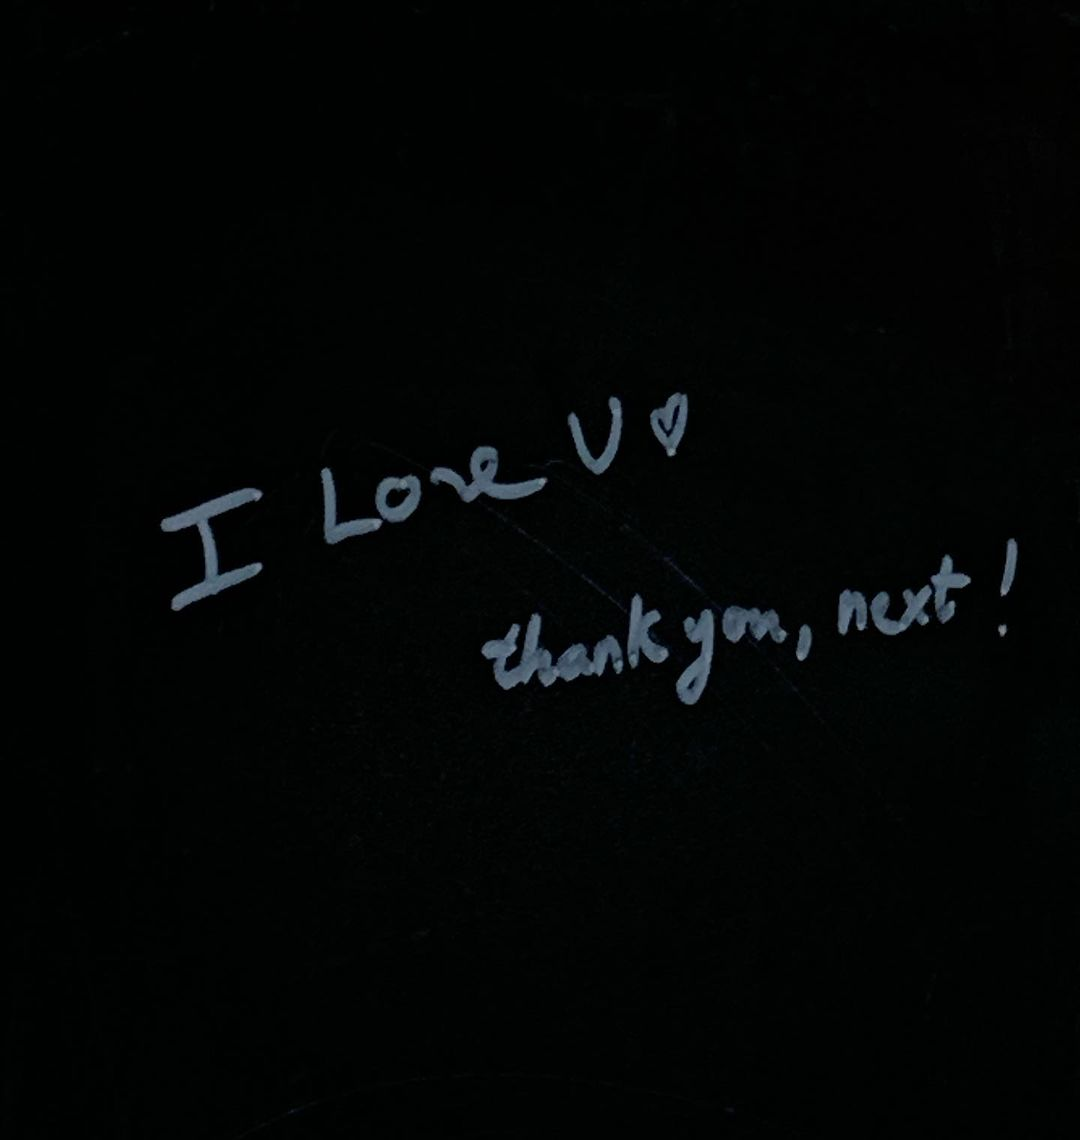 I Love U ♡
thank you, next!